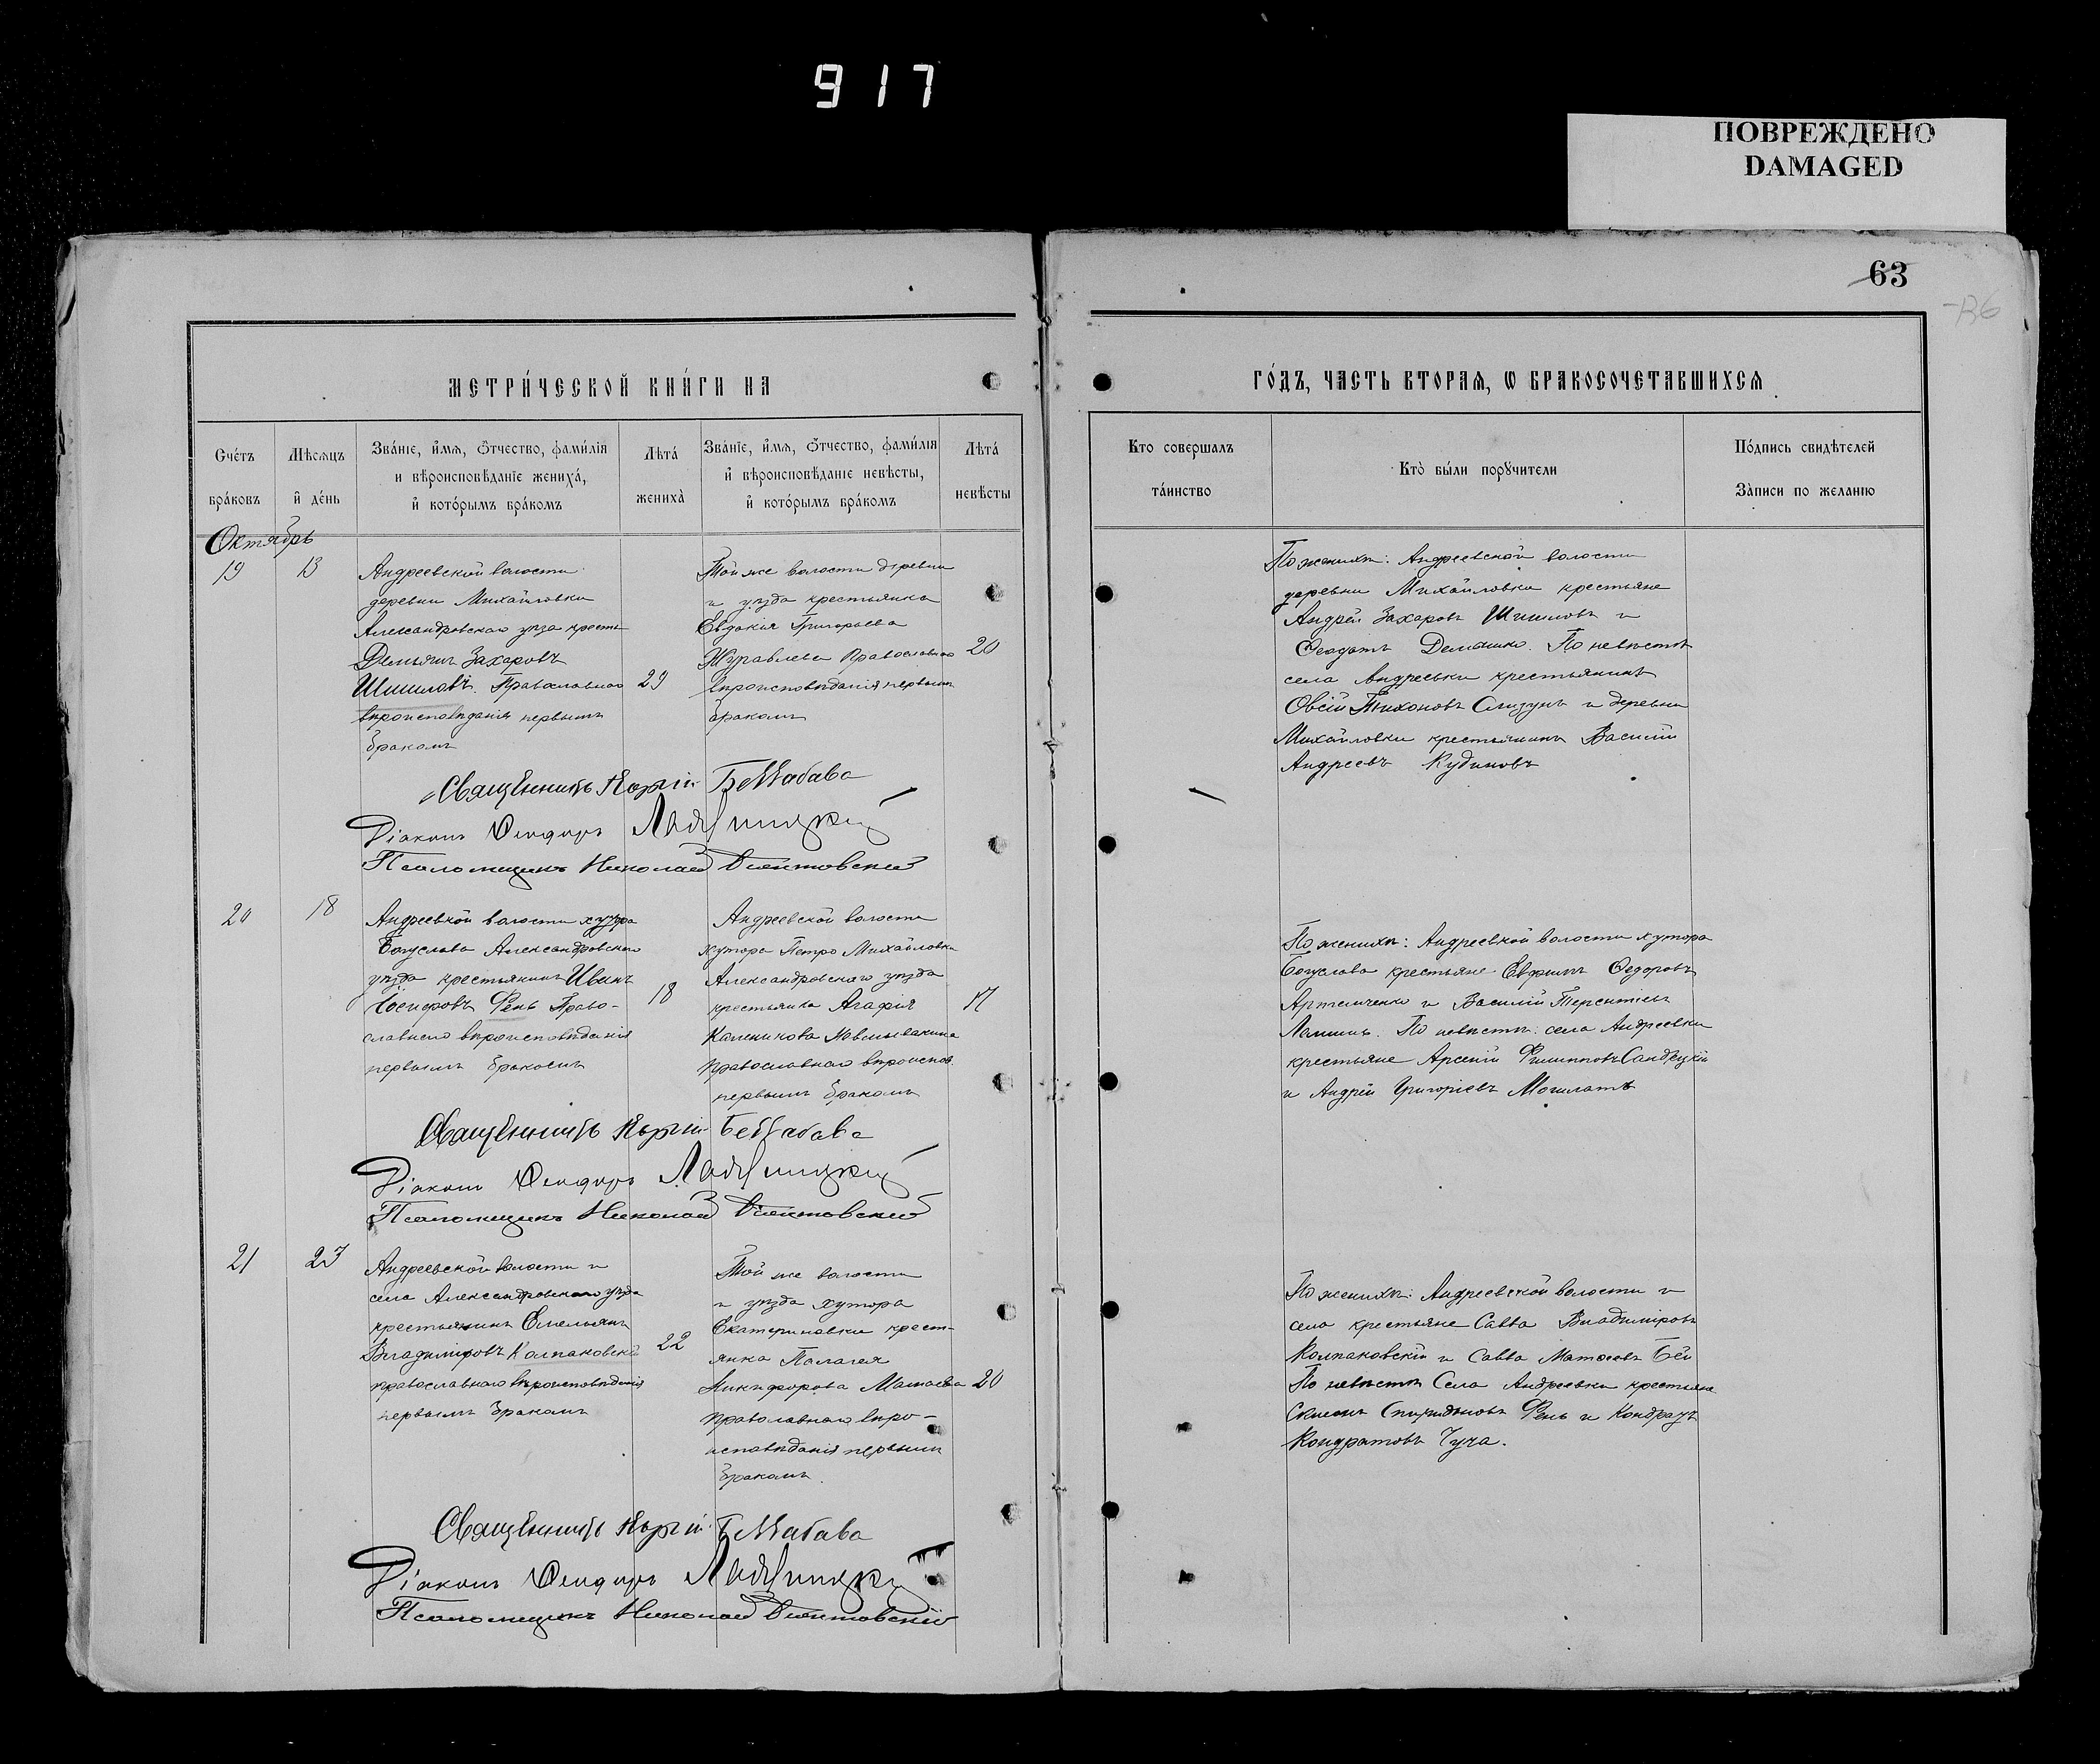 917
ПОВРЕЖДЕНО
DAMAGED
63
МЕТРИ́ЧЕСКОЙ КНИ́ГИ НА
ГО́ДЪ, ЧАСТЬ ВТОРАѦ, Ѡ БРАКОСОЧЕТАВШИХСѦ
Сче́тъ
бра́ковъ
Мѣсѧцъ
и҆ де́нь
Зва́нїе, и҆́мѧ, ѻ҆́тчество, фами́лїѧ
и вѣроисповѣ́данїе жениха̀,
и҆ кото́рымъ бра́комъ
Лѣта́
жениха̀
Зва́нїе, и҆́мѧ, ѻ҆́тчество, фами́лїѧ
и҆ вѣроисповѣ́данїе невѣсты,
и҆ кото́рымъ бра́комъ
Лѣта́
невѣсты
Кто совершалъ
та́инство
Кто̀ бы́ли порꙋчители
По́дпись свидѣтелей
За̀писи по желанїю
Октябрь
19
13
Андреевской волости
деревни Михайловки
Александровскаго уѣзда
Захаровъ
Шишловъ. Православнаго
вѣроисповѣданія первымъ
бракомъ
29
Той же волости деревни
и уѣзда крестьянка
Евдокія Григорьева
Журавлева Православнаго
вѣроисповѣданія первымъ
бракомъ
20
По женихѣ: Андреевской волости
деревни Михайловки крестьяне
Андрей Захаровъ Шишловъ и
Ѳеодотъ По невѣстѣ
села Андреевки крестьянинъ
Овсій Тихоновъ Слизунъ и деревни
Михайловки крестьянинъ Василій
Андреевъ Кудиновъ
Священникъ
Діаконъ Ѳеодоръ
Псаломщикъ Николай
20
18
Андреевской волости хутора
Богуслава Александровскаго
уѣзда крестьянинъ Иванъ
Іосифовъ Фень Право-
славнаго вѣроисповѣданія
первымъ бракомъ
18
Андреевской волости
хутора Петро Михайловки
Александровскаго уѣзда
крестьянка Агафія
православнаго вѣроиспов.
первымъ бракомъ
17
По женихѣ: Андреевкой волости хутора
Богуслава крестьяне Евфимъ Федоровъ
Артемченко и Василій Терентіевъ
По невѣстѣ: села Андреевки
крестьяне Арсеній Филипповъ
и Андрей Григоріевъ
Священникъ
Діаконъ Ѳеодоръ
Псаломщикъ Николай
21
23
Андреевской волости и
села Александровскаго уѣзда
крестьянинъ Емельянъ
Владиміровъ Колпаковскій
православнаго вѣроисповѣданія
первымъ бракомъ
22
Той же волости
и уѣзда хутора
Екатериновки крест-
янка Палагея
Никифорова
православнаго вѣро-
исповѣданія первымъ
бракомъ.
20
По женихѣ: Андреевской волости и
села крестьяне Савва Владиміровъ
Колпаковскій и Савва Матѳеевъ Бей
По невѣстѣ Села Андреевки крестьяне
Спиридоновъ Фень и Кондратъ
Кондратовъ Чуча.
Священникъ
Діаконъ Ѳеодоръ
Псаломщикъ Николай